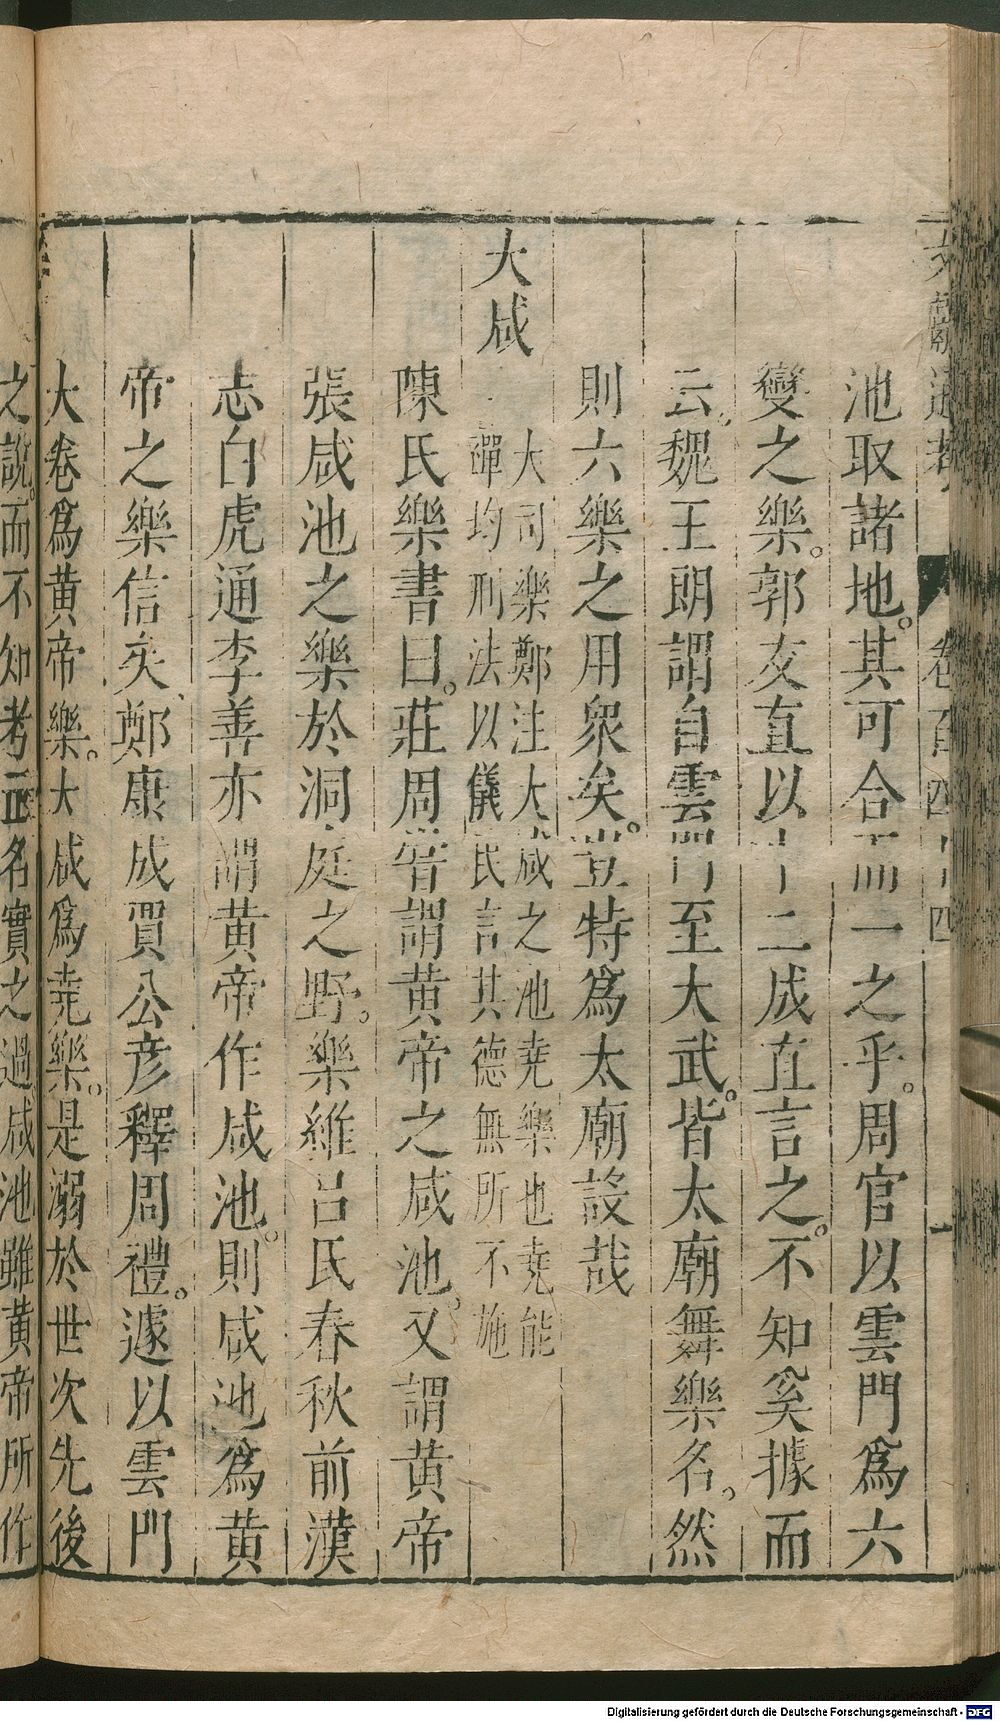 文獻通考 卷百四十四 一
池取諸地。其可合而一之乎。周官以雲門爲六
變之樂。郭友直以十二成直言之。不知奚據而
云。魏王朗謂自雲門至大武。皆太廟舞樂名。然
則六樂之用衆矣。豈特爲太廟設哉
大咸
大司樂鄭注大咸之池堯樂也堯能
殫均刑法以儀民言其德無所不施
陳氏樂書曰。莊周嘗謂黄帝之咸池。又謂黄帝
張咸池之樂於洞庭之野。樂緯呂氏春秋前漢
志白虎通李善亦謂黄帝作咸池。則咸池爲黄
帝之樂信矣、鄭康成賈公彦釋周禮。遽以雲門
大卷爲黄帝樂。大咸爲堯樂。是溺於世次先後
之說。而不知考正名實之過咸池雖黄帝所作
Digitalisierung gefördert durch die Deutsche Forschungsgemeinschaft - DFG